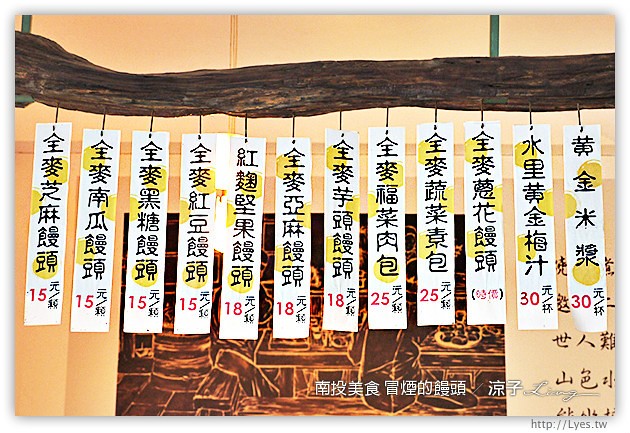 全麥芝麻饅頭 15元/顆
全麥南瓜饅頭 15元/顆
全麥黑糖饅頭 15元/顆
全麥紅豆饅頭 15元/顆
紅麴堅果饅頭 18元/顆
全麥亞麻饅頭 18元/顆
全麥芋頭饅頭 18元/顆
全麥福菜肉包 25元/顆
全麥蔬菜素包 25元/顆
全麥蔥花饅頭 (特價)
水里黃金梅汁 30元/杯
黃金米漿 30元/杯
世人難
山色水
南投美食 冒煙的饅頭 涼子 Liang
http://Lyes.tw